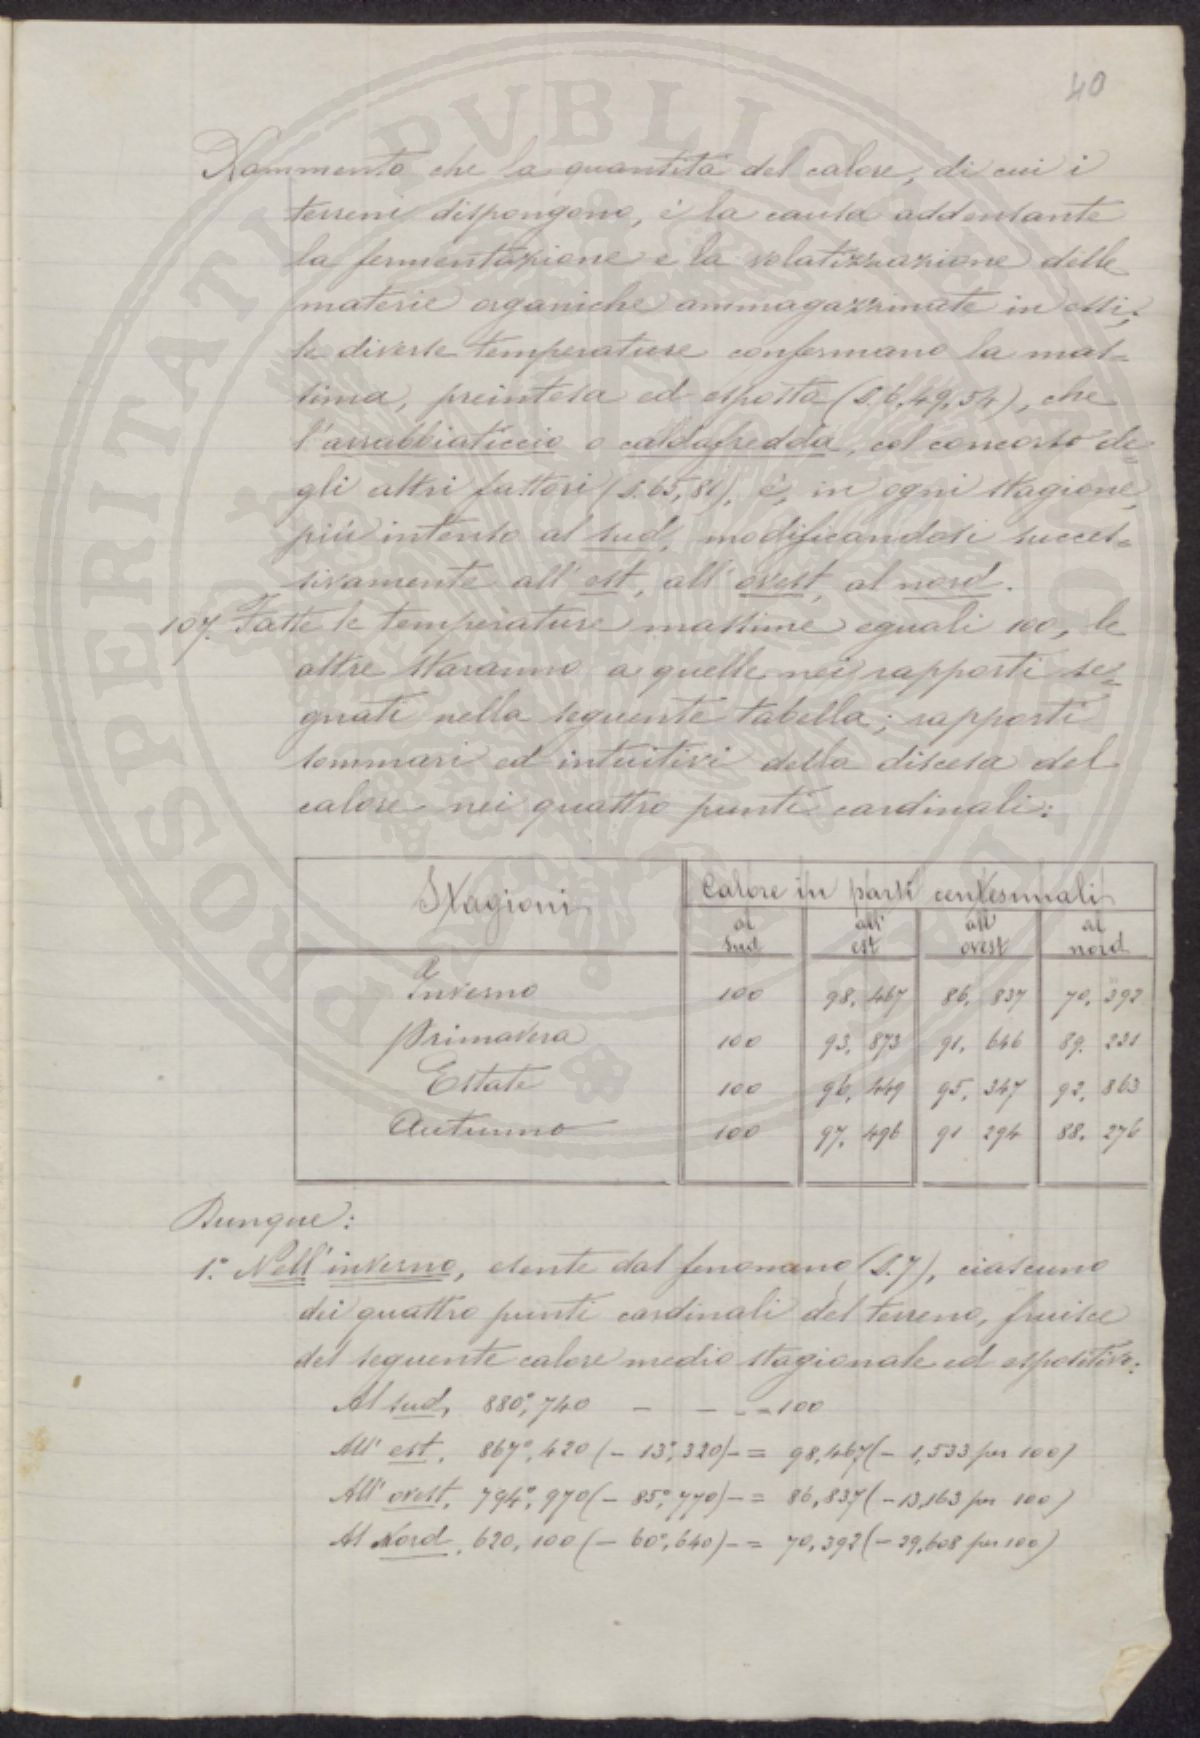 40
Rammento che la quantità del calore, di cui i
terreni dispongono, è la causa addensante
la fermentazione e la volatizzazione delle
materie organiche ammagazzinate in essi;
le diverse temperature confermano la mas=
sima, preintesa ed esposta (§. 6, 49, 54), che
l'arrabbiaticcio o caldafredda, col concorso de=
gli altri fattori (§. 65, 81), è, in ogni stagione,
più intenso al sud, modificandosi succes=
sivamente all' est, all' ovest, al nord.
107. Fatte le temperature massime eguali 100, le
altre staranno a quelle nei rapporti se=
gnati nella seguente tabella; rapporti
sommari ed intuitivi della discesa del
calore nei quattro punti cardinali:
Stagioni Calore in parti centesimali
al sud all' est all' ovest al nord
Inverno 100 98, 467 86, 837 70, 392
Primavera 100 93, 873 91, 646 89. 231
Estate 100 96, 449 95, 347 92, 863
Autunno 100 97, 496 91 294 88. 276
Dunque:
1.° Nell' inverno, esente dal fenomeno (§. 7), ciascuno
dei quattro punti cardinali del terreno, fruisce
del seguente calore medio stagionale ed espositivo:
Al sud, 880°, 740 - - - = 100
All' est, 867°, 420 (- 13°, 320) - = 98, 467 (- 1, 533 per 100)
All' ovest, 794°, 970 (- 85°, 770) - = 86, 837 (- 13, 163 per 100)
Al Nord, 620, 100 (- 60°, 640) - = 70, 392 (- 29, 608 per 100)
PROSPERITATI PVBLICAE